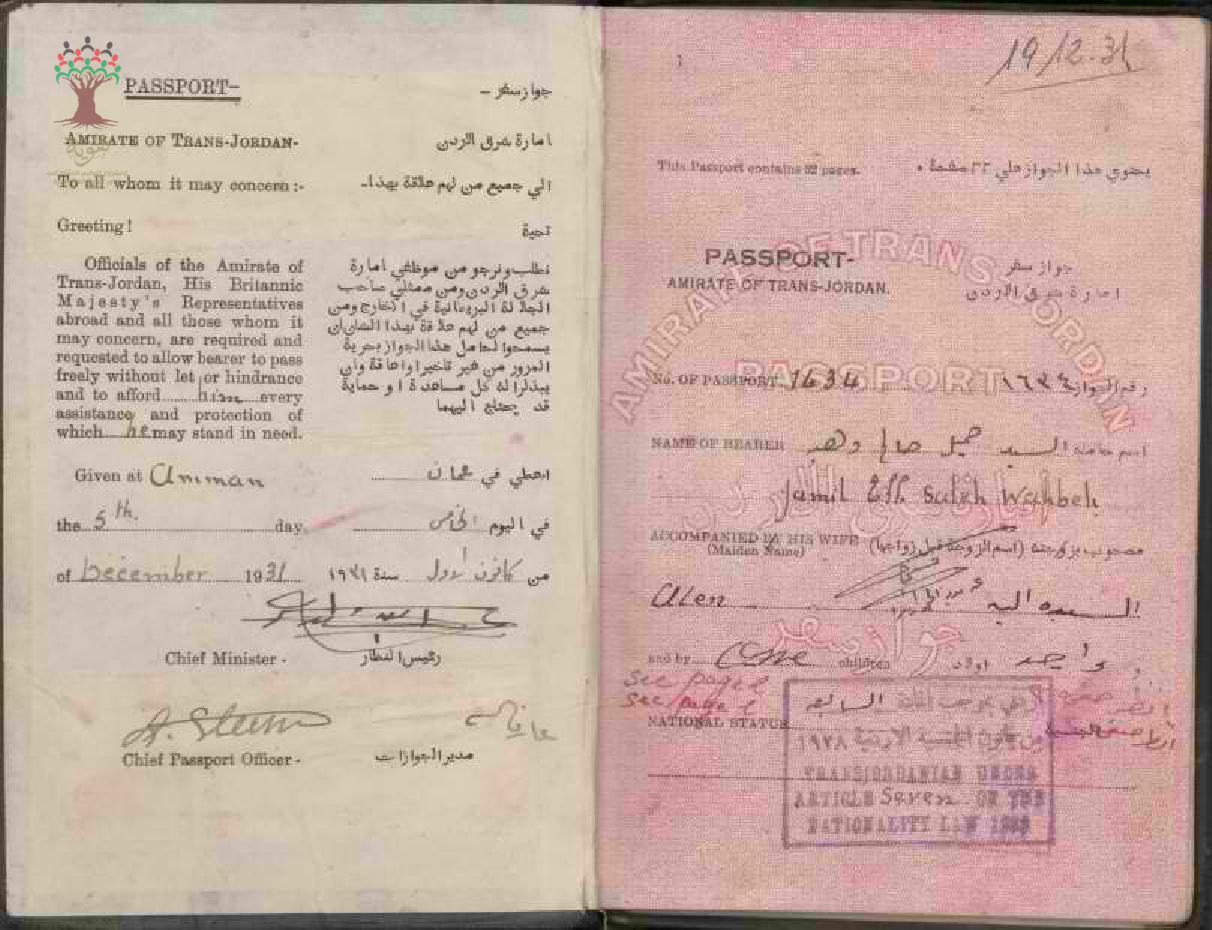 PASSPORT-
جواز سفر -
AMIRATE OF TRANS-JORDAN-
امارة شرق الاردن
To all whom it may concern :-
الى جميع من لهم علاقة بهذا-
Greeting!
تحية
Officials of the Amirate of
Trans-Jordan, His Britannic
Majesty's Representatives
abroad and all those whom it
may concern, are required and
requested to allow bearer to pass
freely without let or hindrance
and to afford him every
assistance and protection of
which he may stand in need.
نطلب ونرجو من موظفي امارة
شرق الاردن ومن ممثلي صاحب
الجلالة البريطانية في الخارج ومن
جميع من لهم علاقة بهذا الشان ان
يسمحوا لحامل هذا الجواز بحرية
المرور من غير تاخير او اعاقة وان
يبذلوا له كل مساعدة او حماية
قد يحتاج اليهما
Given at Amman
اعطي في عمان
the 5th. day.
في اليوم الخامس
of December 1931
من كانون اول سنة ١٩٣١
Chief Minister -
رئيس النظار
Chief Passport Officer -
مدير الجوازات
1
19/12.31
This Passport contains 32 pages.
يحتوي هذا الجواز على ٣٢ صفحة .
AMIRATE OF TRANS JORDAN
PASSPORT-
جواز سفر
AMIRATE OF TRANS-JORDAN.
امارة شرق الاردن
PASSPORT
No. OF PASSPORT 1634
رقم الجواز ١٦٣٤
NAME OF BEARER
اسم حامله السيد جميل صالح وهبه
Jamil Eff. Saleh Wahbeh
ACCOMPANIED BY HIS WIFE
(Maiden Name)
مصحوب بزوجته (اسم الزوجة قبل زواجها)
جواز سفر
and by One children
واحد اولاد
see page 2
see page
NATIONAL STATUS
السابعة
من قانون الجنسية الاردنية ١٩٢٨
TRANSJORDANIAN UNDER
ARTICLE Seven OF THE
NATIONALITY LAW 1928